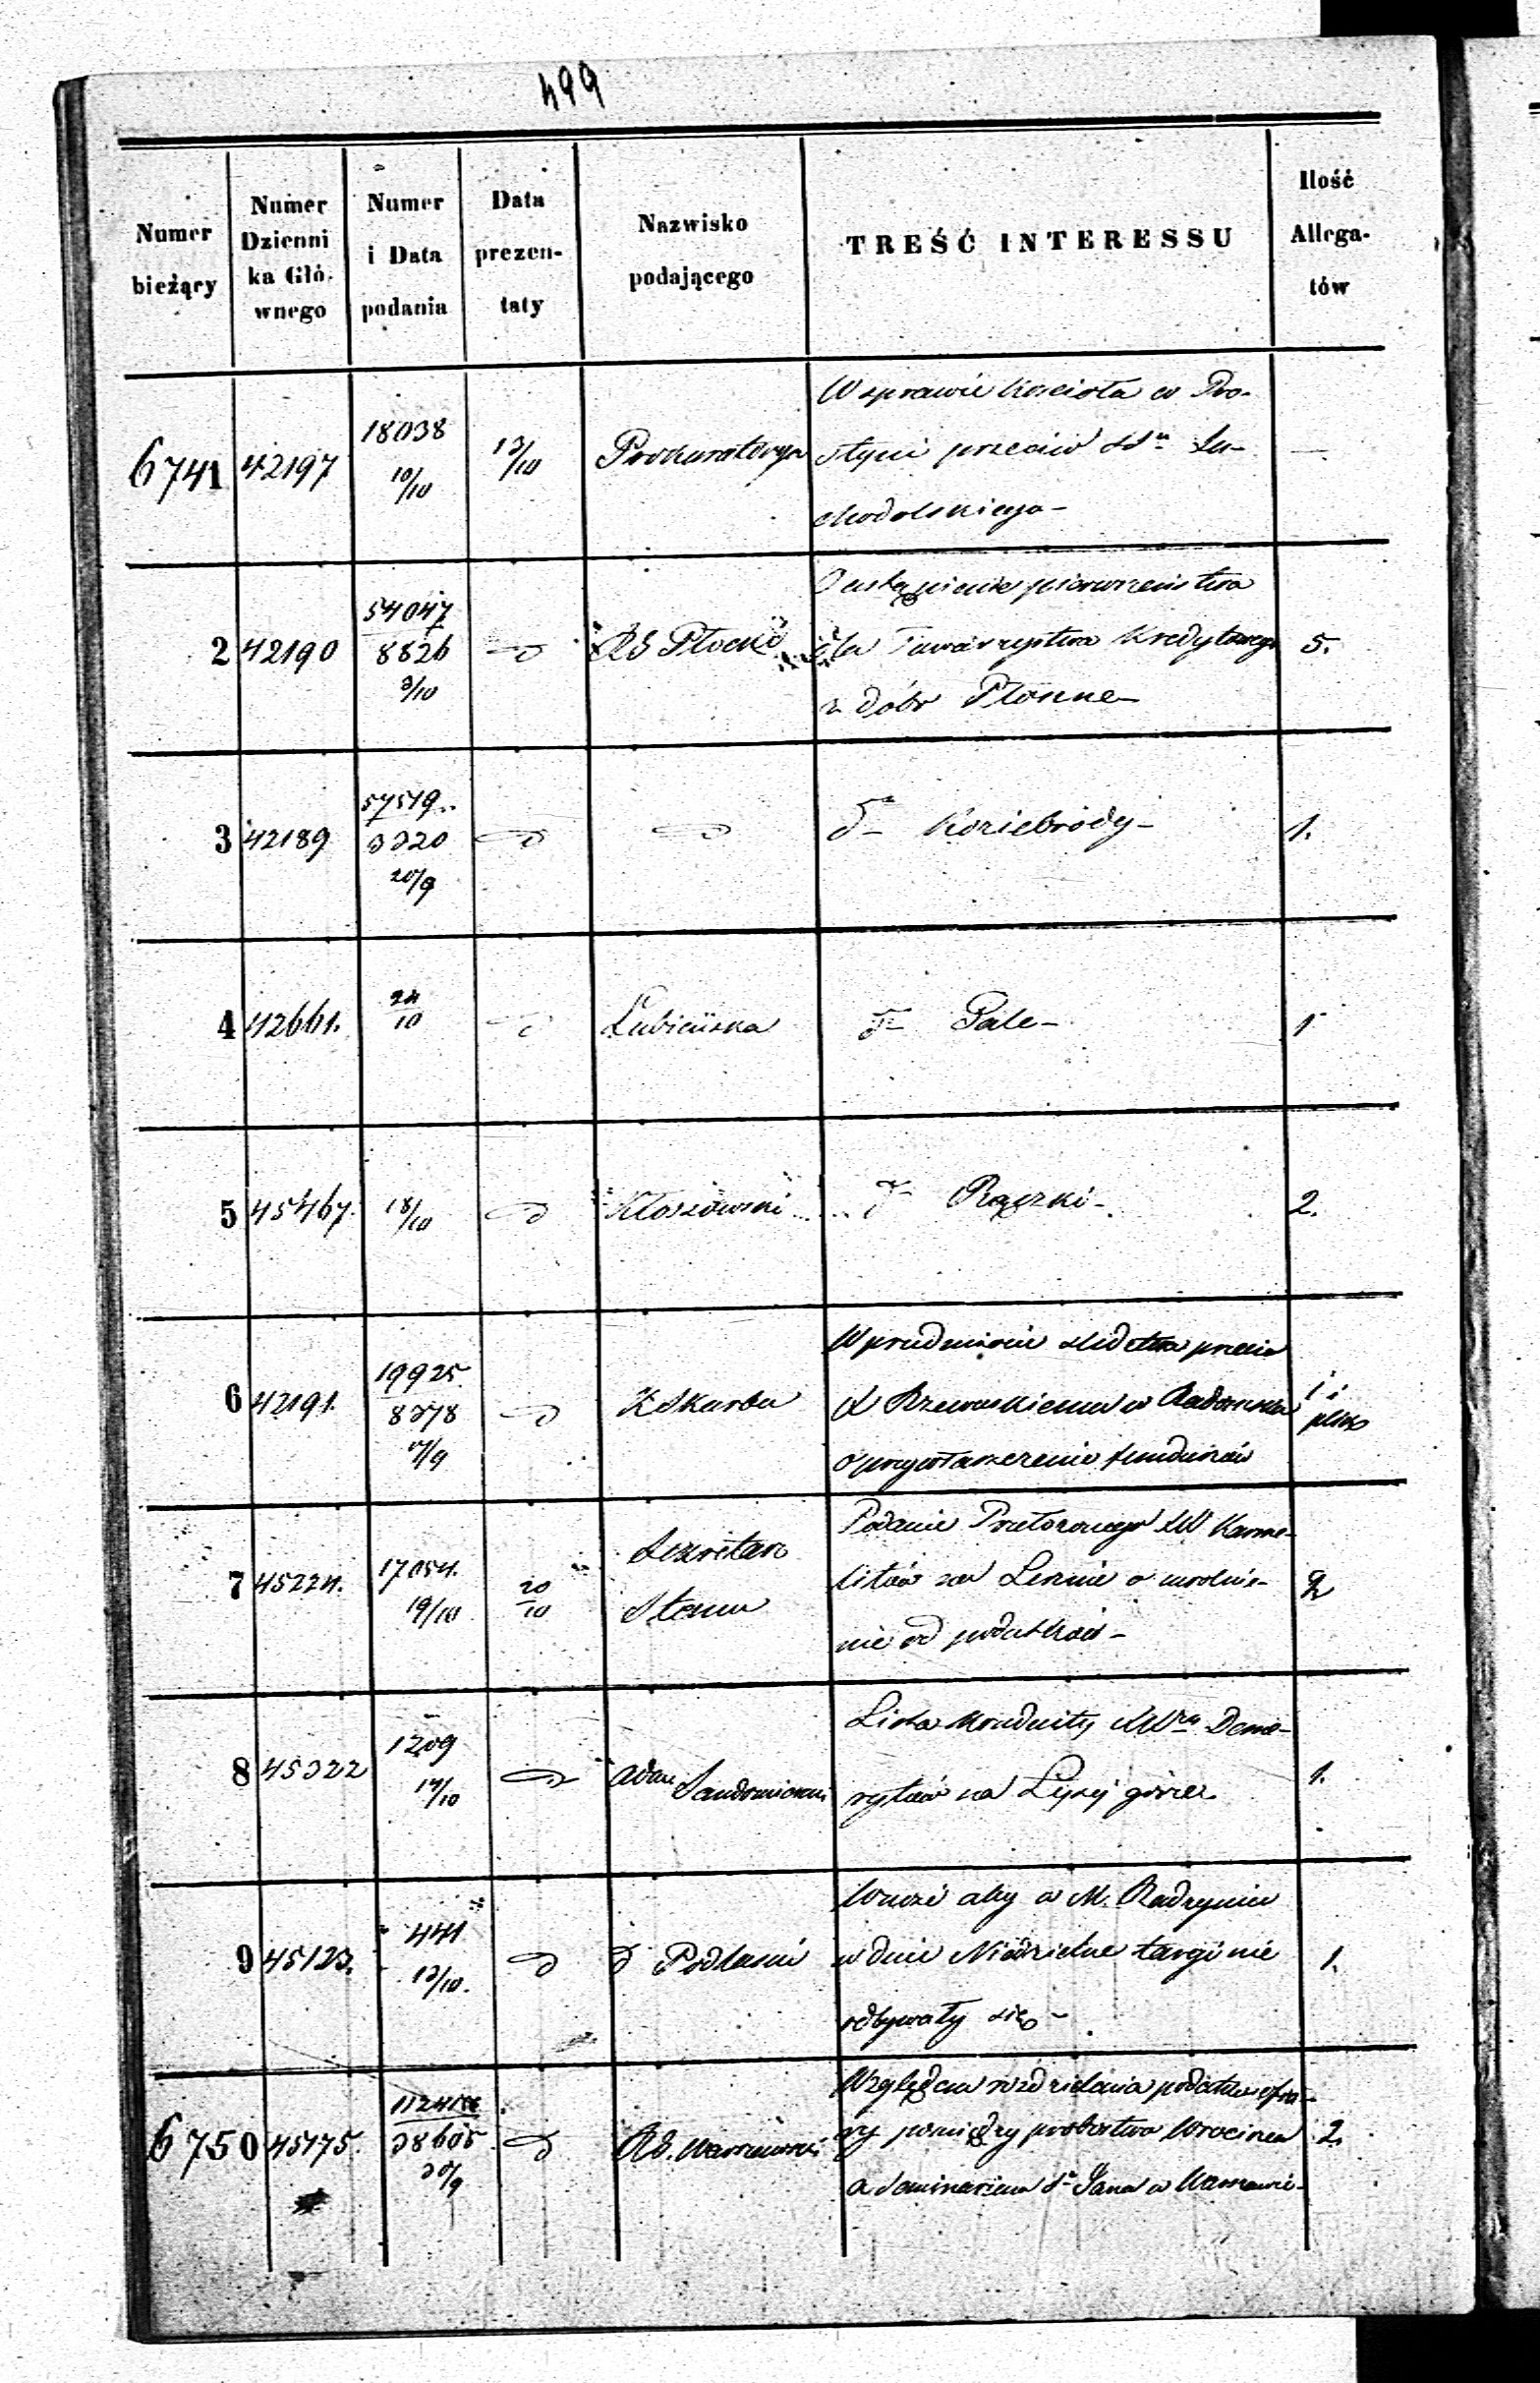 499
Numer bieżący
Numer Dzienni ka Głó- wnego
Numer i Data podania
Data prezen- taty
Nazwisko podającego
TREŚĆ INTERESSU
Ilość Allega- tów
6741 42197 18038 10/10 13/10 Prokuratorya
W sprawie kościoła w Pro-
styni przeciw Sr Su-
chodolskiego –
—
2 42190 54047 8826 3/10 RG Płocki
O ustąpienie pierwszeństwa
dla Towarzystwa Kredytowego
z dóbr Płonne –
5.
3 42189 57519 3320 20/9
do Koziebrody –
1.
4 42661. 24/10 Lubieńska
do Pale –
1
5 45467. 18/10 Kłossowski
do Rączki –
2.
6 42191. 19925 8378 /9 K Skarbu
W przedmiocie
w
o przywłaszczenie funduszów
1 i plik
7 45224. 17054. 19/10 20/10 Sekretarz
Stanu
Podanie Przełożonego XX Karme-
litów na Lesznie o uwolnie-
nie od podatków –
2
8 45322 1209 14/10 Adm Sandomierski
Lista konduity XXży Deme-
rytów na Łysej górze
1.
9 45123. 441 13/10. d Podlaski
Wnosi aby w M. Radzyniu
w dnie Niedzielne targi nie
odbywały się –
1.
6750 45175. 38605 30/9 RG. Warszawski
Względem rozdzielenia podatku ofia-
ry pomiędzy probostwo Wrocinea
a Seminarium S. Jana w Warszawie –
2.